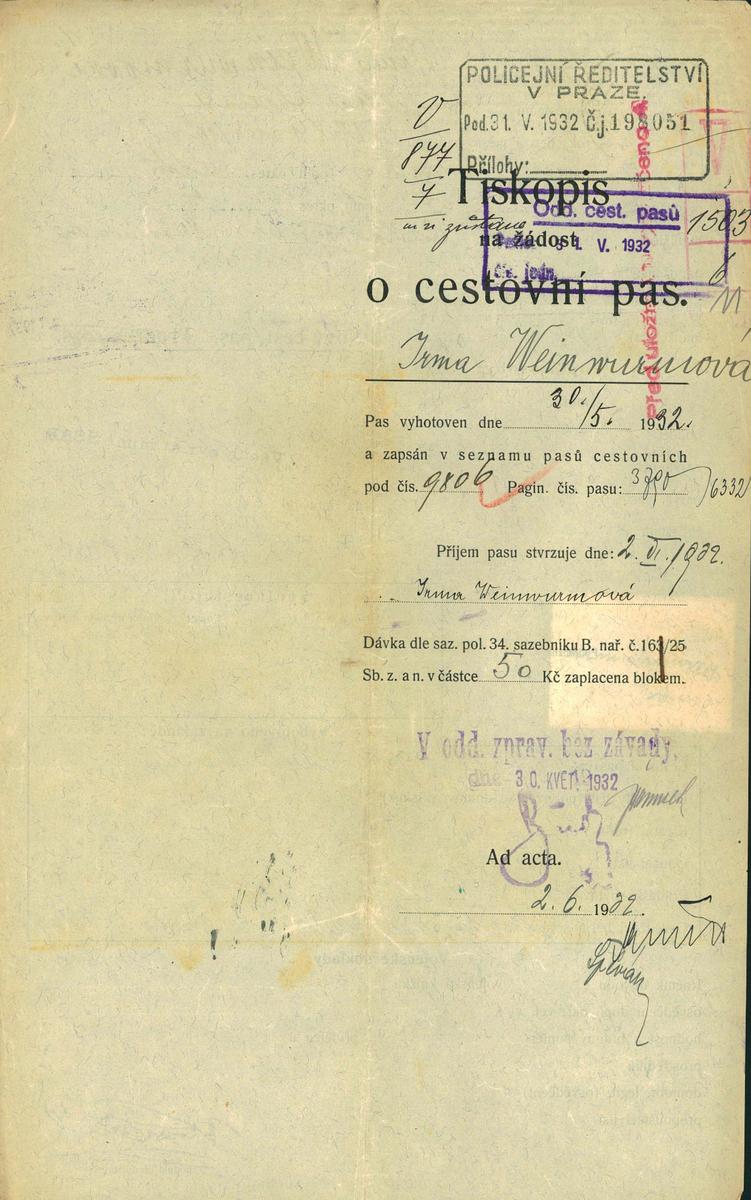 POLICEJNÍ ŘEDITELSTVÍ
V PRAZE.
Pod. 31. V. 1932 Č.j. 198051
Přílohy:
V
877
7
Tiskopis
Odd. cest. pasů
1503
na žádost
31. V. 1932
6
o cestovní pas.
Irma Weinwurmová
Pas vyhotoven dne 30./5. 1932.
a zapsán v seznamu pasů cestovních
pod čís. 9806 Pagin. čís. pasu: 3790/6332
Příjem pasu stvrzuje dne: 2. VI. 1932.
Irma Weinwurmová
Dávka dle saz. pol. 34. sazebníku B. nař. č. 163/25
Sb. z. a n. v částce 50 Kč zaplacena blokem.
V odd. zprav. bez závady.
dne 30. KVĚT. 1932
Ad acta.
2. 6. 1932.